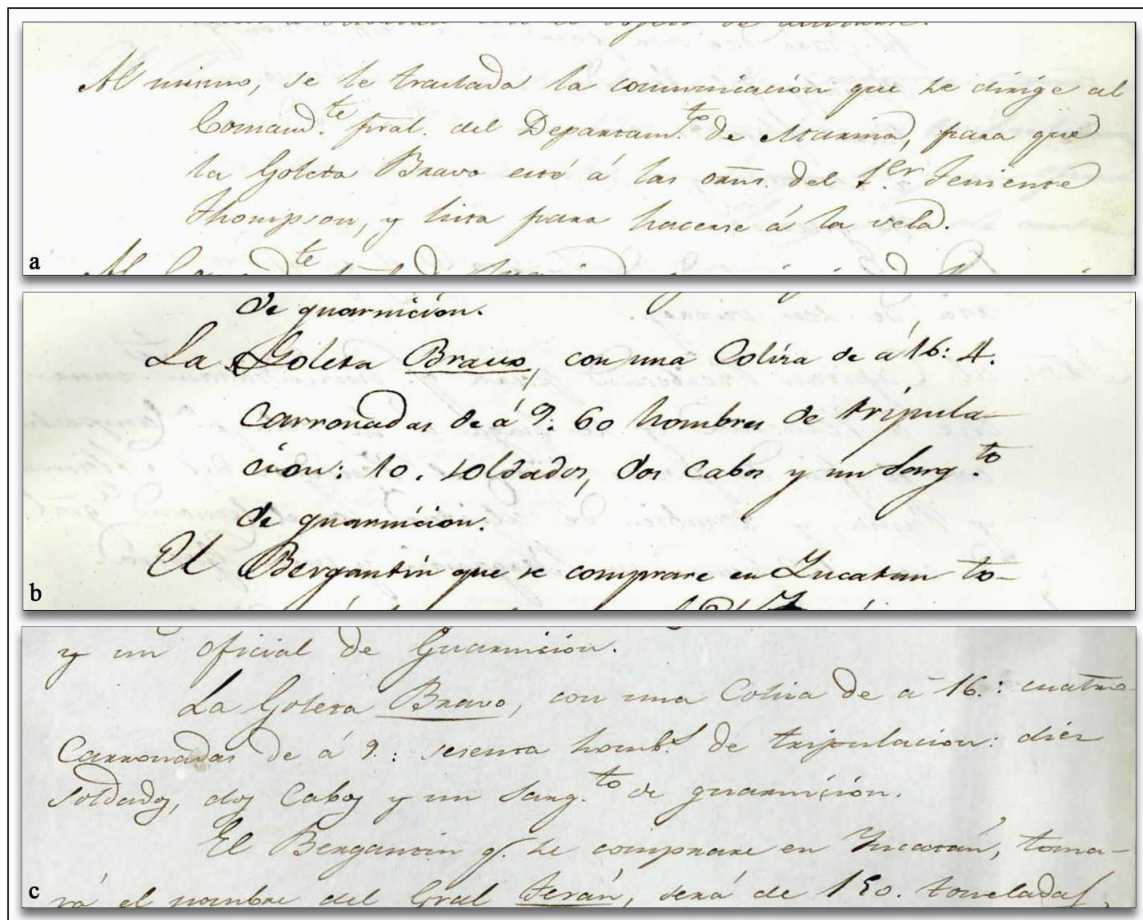 Al mismo, se le traslada la comunicación que se dirige al
Comand.te pral. del Departam.to de Marina, para que
la Goleta Bravo esté á las orns. del 1.er Teniente
Thompson, y lista para hacerse á la vela.
a
de guarnicion.
La Goleta Bravo, con una Coliza de á 16: 4.
carronadas de á 9. 60 hombres de tripula-
cion: 10. soldados, dos cabos y un Sarg.to
de guarnicion.
El Bergantin que se comprare en Yucatan to-
b
y un oficial de Guarnicion.
La Goleta Bravo, con una Coliza de á 16.: cuatro
Carronadas de á 9.: sesenta homb.s de tripulacion: diez
soldados, dos Cabos y un Sarg.to de guarnición.
El Bergantin q.e se comprare en Yucatán, toma-
rá el nombre del Gral Terán, será de 150. toneladas,
c